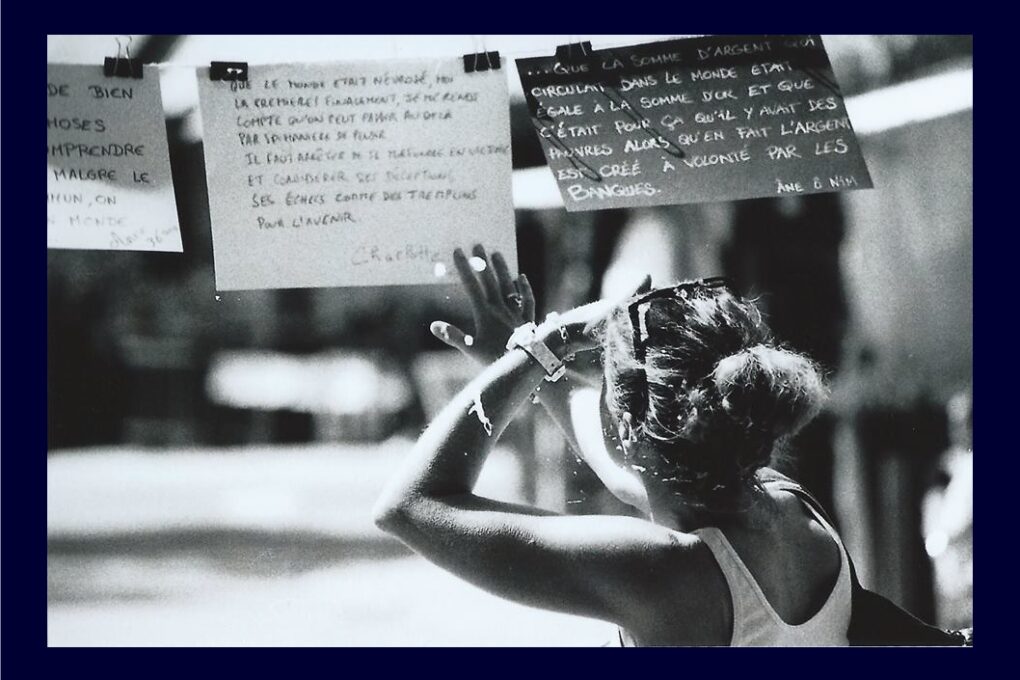 DE BIEN
HOSES
MPRENDRE
MALGRE LE
MUN, ON
MONDE
QUE LE MONDE ETAIT NÉVROSÉ, MOI
LA PREMIERE! FINALEMENT, JE ME RENDS
COMPTE QU'ON PEUT PASSER AU DELÀ
PAR SA MANIERE DE PENSER
IL FAUT ARRÊTER DE SE MORFONDRE EN VICTIME
ET CONSIDERER SES DÉCEPTIONS
SES ÉCHECS COMME DES TREMPLINS
POUR L'AVENIR.
CHARLOTTE
...QUE LA SOMME D'ARGENT QUI
CIRCULAIT DANS LE MONDE ÉTAIT
ÉGALE A LA SOMME D'OR ET QUE
C'ÉTAIT POUR ÇA QU'IL Y AVAIT DES
PAUVRES ALORS QU'EN FAIT L'ARGENT
EST CRÉÉ À VOLONTÉ PAR LES
BANQUES.
ÂNE Ô NIM